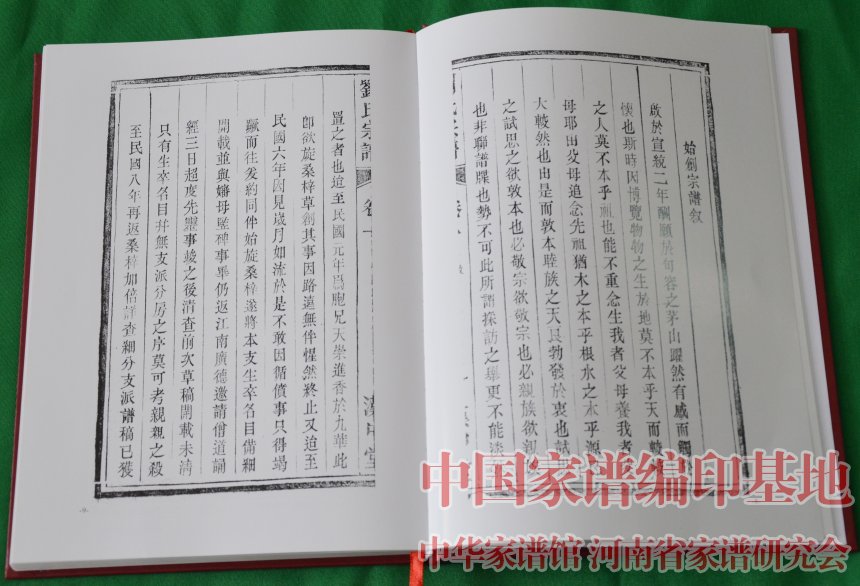 始創宗譜叙
啟於宣統二年酬願於句容之茅山躍然有感而觸
懷也斯時因博覽物物之生於地莫不本乎天而
之人莫不本乎祖也能不重念生我者父母養我者
母耶由父母追念先祖猶木之本乎根水之本乎源
大較然也由是而敦本睦族之天良勃發於衷也
之試思之欲敦本也必敬宗欲敬宗也必親族欲
也非聯譜牒也勢不可此所謂採訪之舉更不能
劉氏宗譜
卷
置之者也迨至民國元年爲胞兄天崇進香於九華此
卽欲旋桑梓草創其事因路遠無伴惺然終止又迨至
民國六年因見歲月如流於是不敢因循僨事只得竭
蹶而往爰約同伴始旋桑梓遂將本支生卒名目備細
開載並與嬸母竪碑事畢仍返江南廣德邀請僧道誦
經三日超度先靈事竣之後清查前次草稿開載未清
只有生卒名目幷無支派分房之序莫可考親親之殺
至民國八年再返桑梓加倍詳查細分支派譜稿已獲
-9-
中国家谱编印基地
中华家谱馆 河南省家谱研究会